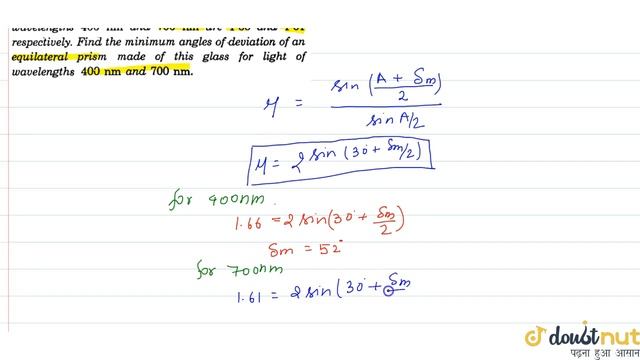 wavelengths 400 nm and 700 nm are 1·66 and 1·61
respectively. Find the minimum angles of deviation of an
equilateral prism made of this glass for light of
wavelengths 400 nm and 700 nm.
μ = sin (A + δm / 2) / sin A/2
μ = 2 sin (30° + δm/2)
for 400nm.
1.66 = 2 sin(30° + δm/2)
δm = 52°
for 700nm
1.61 = 2 sin (30° + δm
doubtnut
पढ़ना हुआ आसान